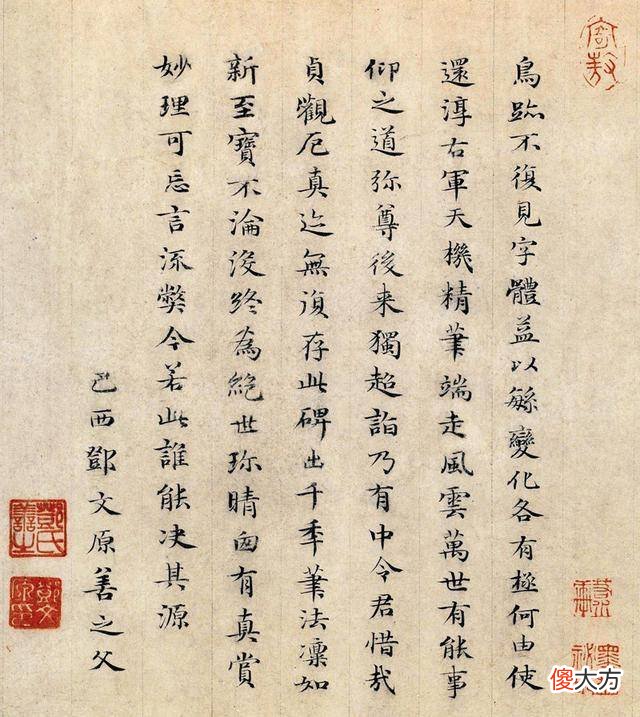 鳥跡不復見字體益以緐變化各有極何由使
還淳右軍天機精筆端走風雲萬世有能事
仰之道弥尊後来獨超詣乃有中令君惜哉
貞觀后真迹無復存此碑出千季筆法凛如
新至寶不淪没終為絶世珎晴囪有真賞
妙理可忘言流弊今若此誰能决其源
己酉鄧文原善之父
傻大方